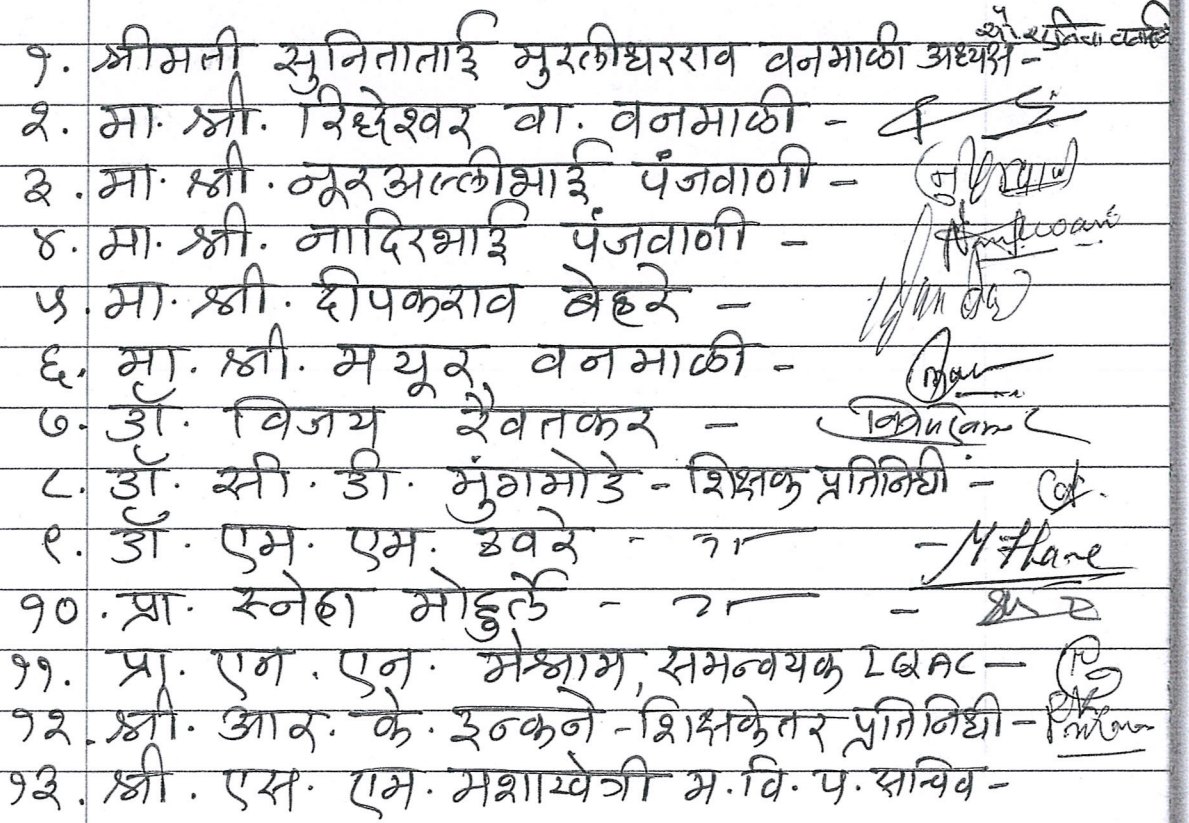 १. श्रीमती सुनिताताई मुरलीधरराव वनमाळी अध्यक्ष -
२. मा. श्री. रिध्देश्वर वा. वनमाळी -
३. मा. श्री. नूरअल्लीभाई पंजवाणी -
४. मा. श्री. नादिरभाई पंजवाणी -
५. मा. श्री. दीपकराव बेहरे -
६. मा. श्री. मयूर वनमाळी -
७. डॉ. विजय रैवतकर -
८. डॉ. सी. डी. मुंगमोडे - शिक्षक प्रतिनिधी -
९. डॉ. एम. एम. ठवरे - -
१०. प्रा. स्नेहा मोहुर्ले - -
११. प्रा. एन. एन. मेश्राम, समन्वयक IQAC -
१२. श्री. आर. के. इन्कने - शिक्षकेतर प्रतिनिधी -
१३. श्री. एस. एम. मशाखेत्री म. वि. प. सचिव -